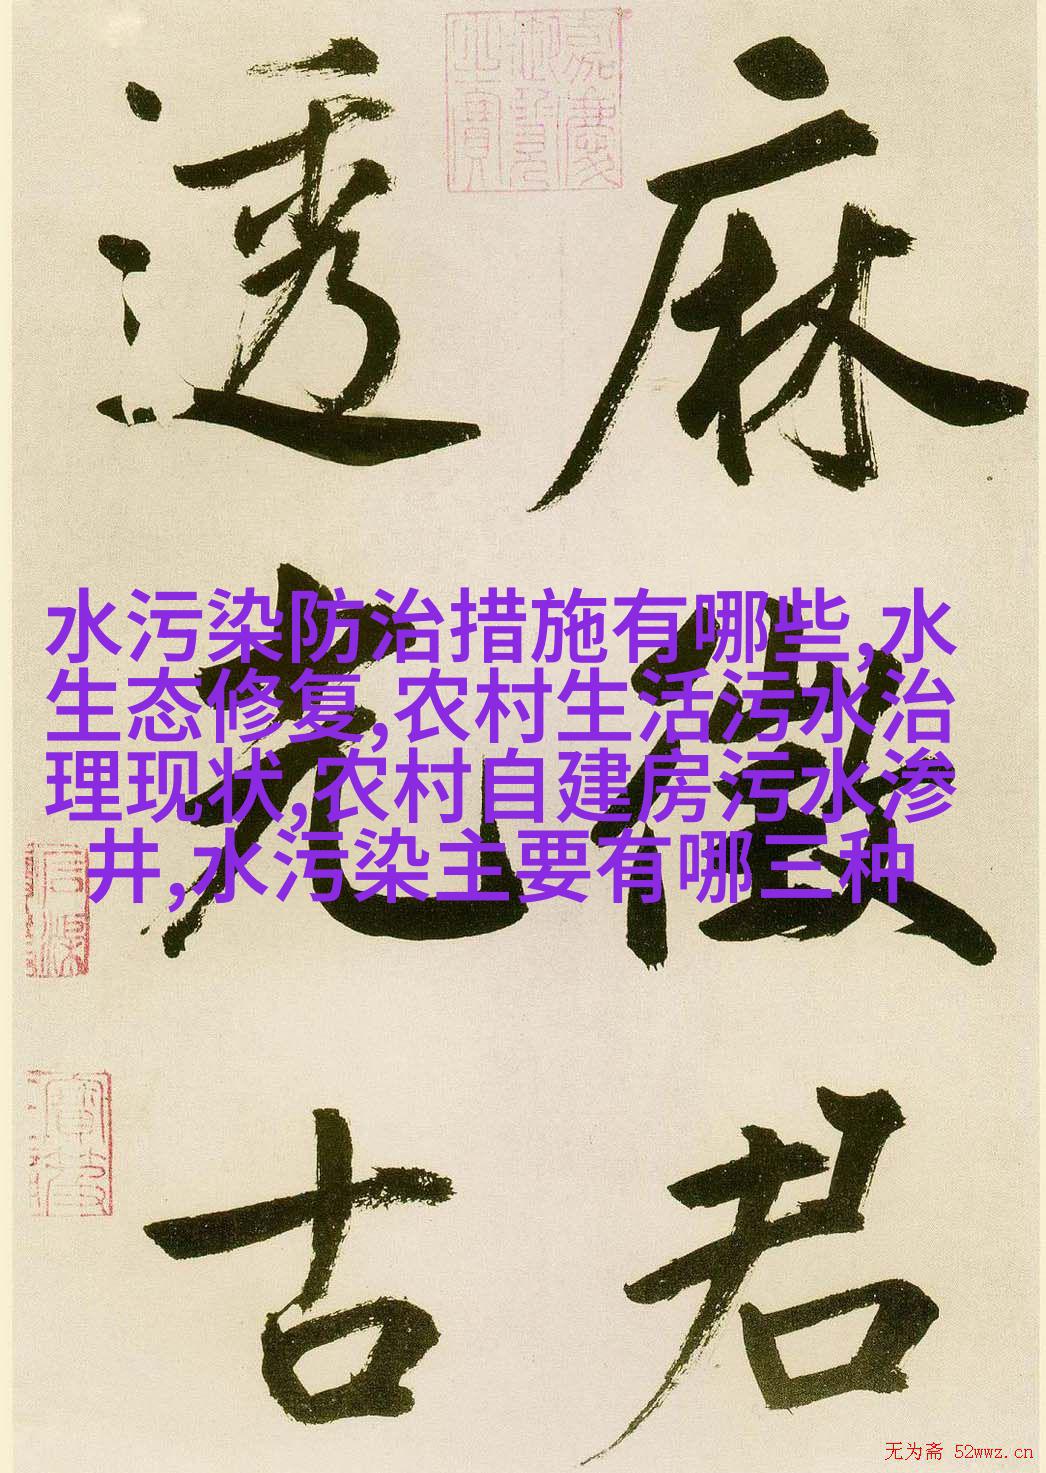 麻徴君
透光古
嘉慶
御覽
之寶
水污染防治措施有哪些,水
生态修复,农村生活污水治
理现状,农村自建房污水渗
井,水污染主要有哪三种
无为斋 52wwz.cn